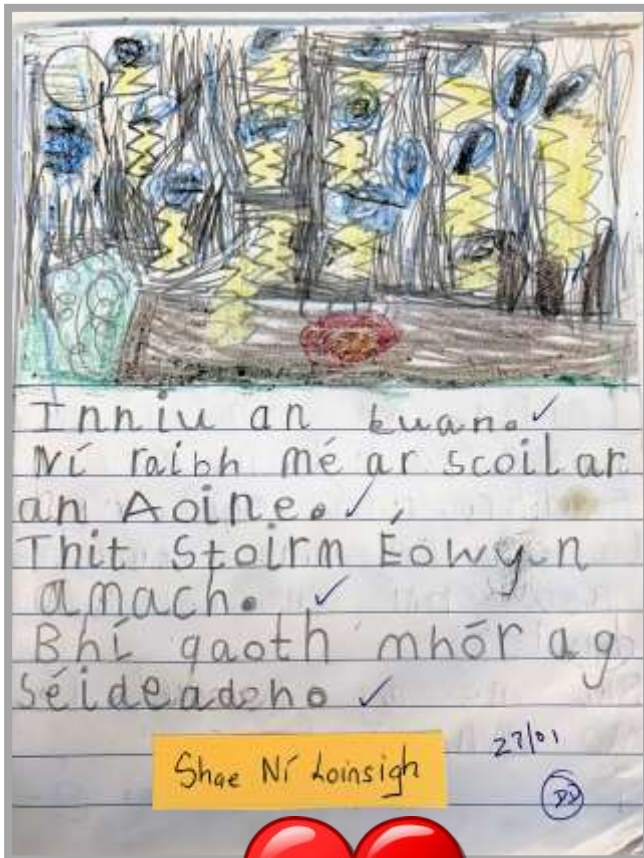 Inniu an Luan.
Ní raibh mé ar scoil ar
an Aoine.
Thit Stoirm Éowyn
amach.
Bhí gaoth mhór ag
séideadh.
27/01
Shae Ní Loinsigh